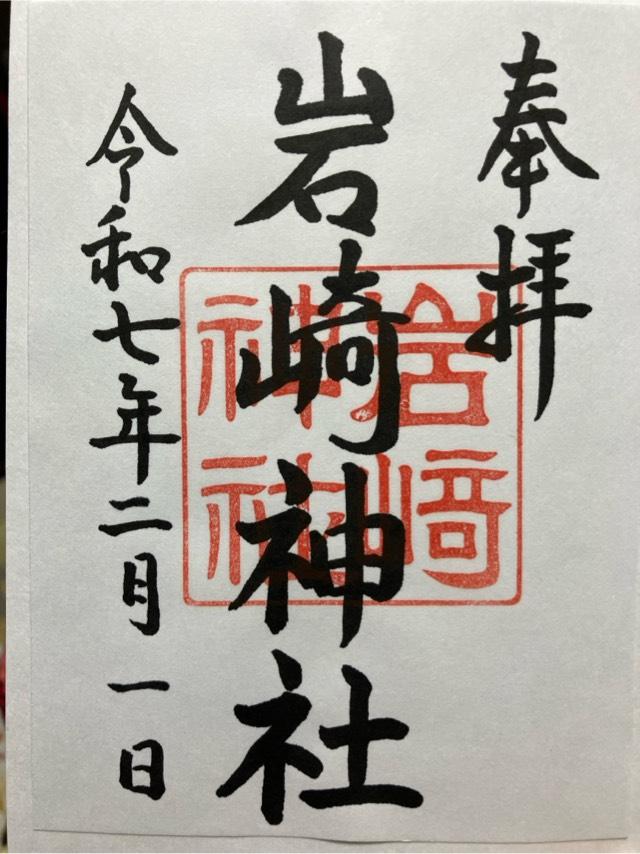 奉拝
岩崎神社
岩﨑
神社
令和七年二月一日